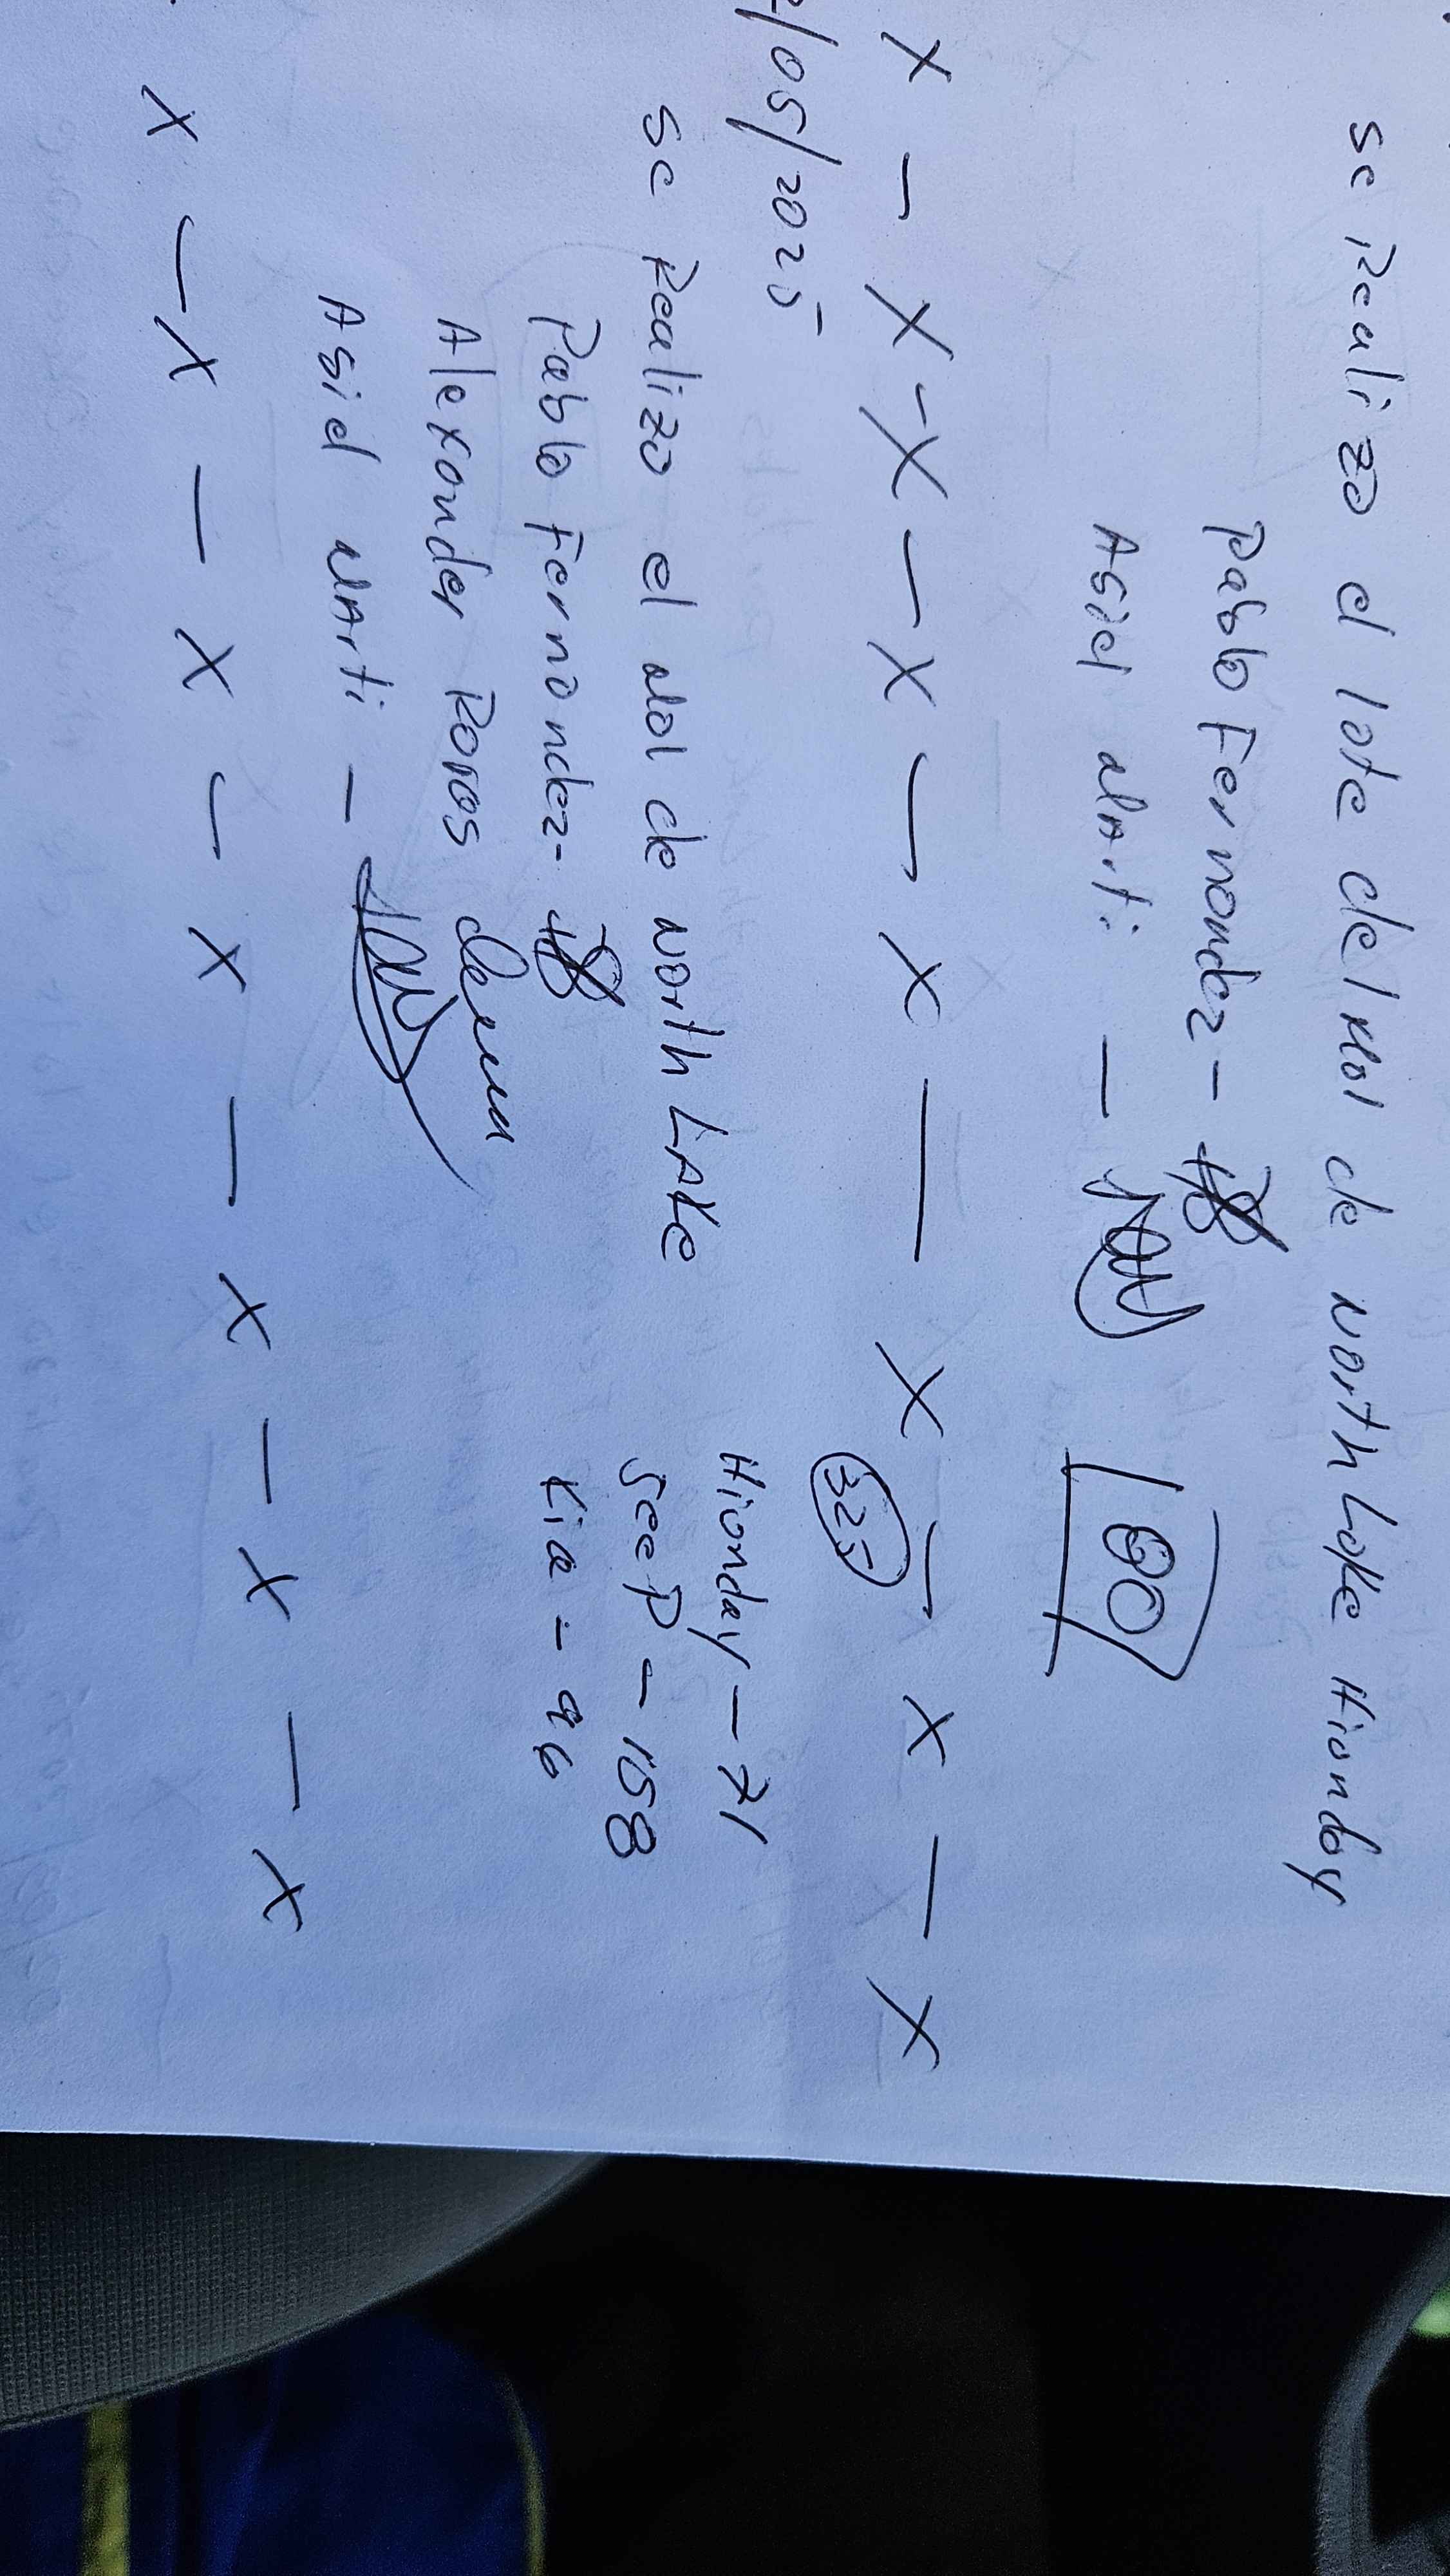 se Realizo el lote del Mol de north Lake Hionday
Pablo Fernandez -
Asiel MArti -
80
X - X - X - X - X - X - X - X - X
/05/2025
325
se Realizo el Mol de north LAKe
Pablo Fernandez -
Alexander Rojas
Asiel MArti -
Hionday - 71
JeeP - 158
Kia - 96
X - X - X - X - X - X - X